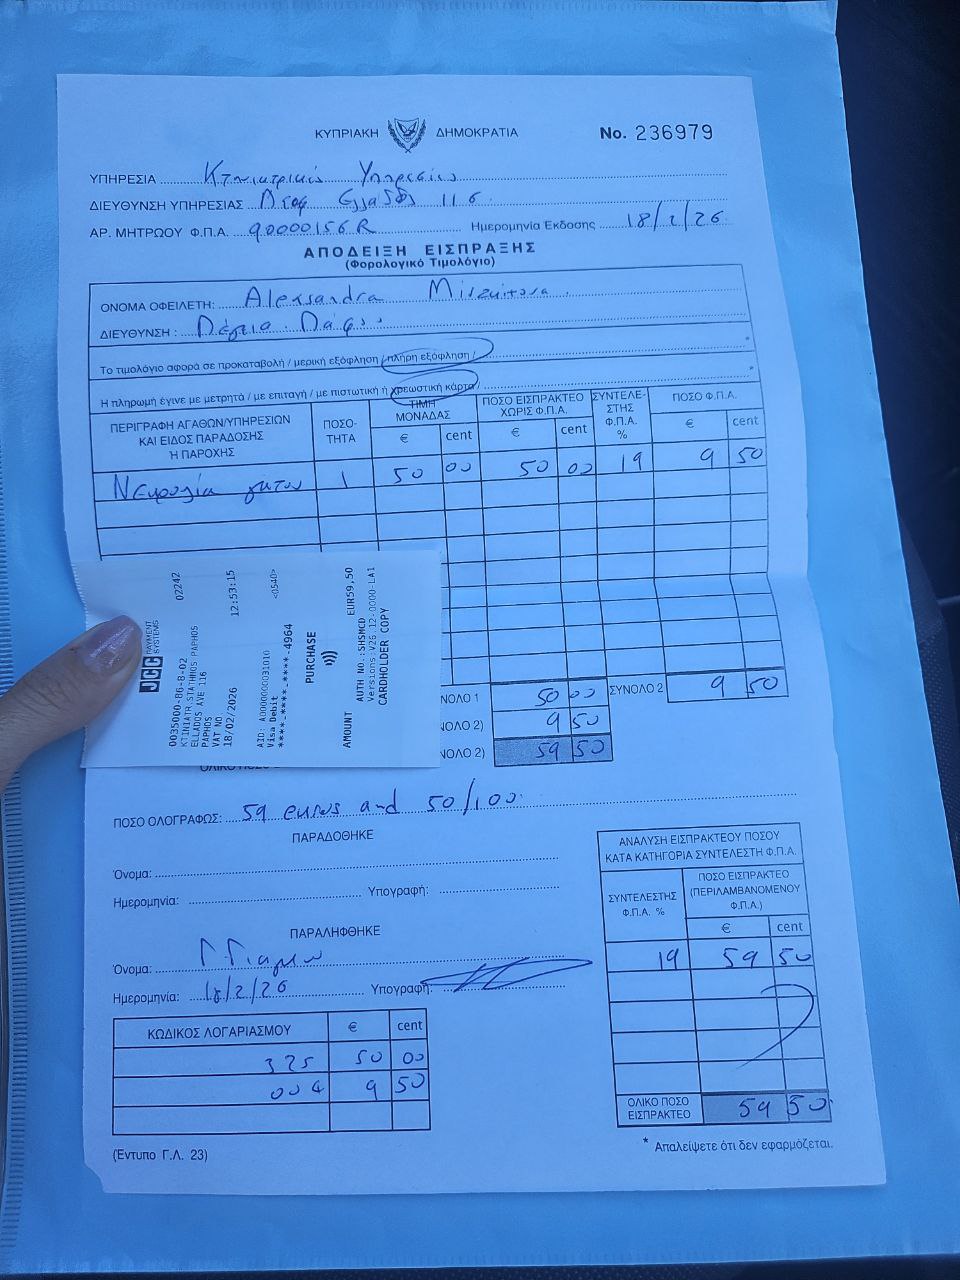 ΚΥΠΡΙΑΚΗ ΔΗΜΟΚΡΑΤΙΑ
No. 236979
ΥΠΗΡΕΣΙΑ Κτηνιατρικές Υπηρεσίες
ΔΙΕΥΘΥΝΣΗ ΥΠΗΡΕΣΙΑΣ Λεωφ Ελλάδος 116
ΑΡ. ΜΗΤΡΩΟΥ Φ.Π.Α. 90000156R Ημερομηνία Εκδοσης 18/2/26
ΑΠΟΔΕΙΞΗ ΕΙΣΠΡΑΞΗΣ
(Φορολογικό Τιμολόγιο)
ΟΝΟΜΑ ΟΦΕΙΛΕΤΗ: Alexsandra
ΔΙΕΥΘΥΝΣΗ : Πέγεια Πάφος
Το τιμολόγιο αφορά σε προκαταβολή / μερική εξόφληση / πλήρη εξόφληση / *
Η πληρωμή έγινε με μετρητά / με επιταγή / με πιστωτική ή χρεωστική κάρτα / *
ΠΕΡΙΓΡΑΦΗ ΑΓΑΘΩΝ/ΥΠΗΡΕΣΙΩΝ ΚΑΙ ΕΙΔΟΣ ΠΑΡΑΔΟΣΗΣ Ή ΠΑΡΟΧΗΣ
ΠΟΣΟ-ΤΗΤΑ
ΤΙΜΗ ΜΟΝΑΔΑΣ
ΠΟΣΟ ΕΙΣΠΡΑΚΤΕΟ ΧΩΡΙΣ Φ.Π.Α.
ΣΥΝΤΕΛΕ-ΣΤΗΣ Φ.Π.Α. %
ΠΟΣΟ Φ.Π.Α.
€ cent € cent € cent
Νεκροψία γάτου 1 50 00 50 00 19 9 50
JCC PAYMENT SYSTEMS
0035000-B6-8-02 02242
KTINIATR.STATHMOS PAPHOS
ELLADOS AVE 116
PAPHOS
VAT NO
18/02/2026 12:53:15
AID: A0000000031010 <0540>
Visa Debit
****-****-****-4964
PURCHASE
AMOUNT EUR59,50
AUTH NO.:SHSMCD
Versions:V26 12-0000-LA1
CARDHOLDER COPY
ΝΟΛΟ 1 50 00 ΣΥΝΟΛΟ 2 9 50
ΝΟΛΟ 2) 9 50
ΝΟΛΟ 2) 59 50
ΠΟΣΟ ΟΛΟΓΡΑΦΩΣ: 59 euros and 50/100
ΠΑΡΑΔΟΘΗΚΕ
Όνομα:
Ημερομηνία: Υπογραφή:
ΠΑΡΑΛΗΦΘΗΚΕ
Όνομα:
Ημερομηνία: 18/2/26 Υπογραφή:
ΚΩΔΙΚΟΣ ΛΟΓΑΡΙΑΣΜΟΥ € cent
325 50 00
004 9 50
(Έντυπο Γ.Λ. 23)
ΑΝΑΛΥΣΗ ΕΙΣΠΡΑΚΤΕΟΥ ΠΟΣΟΥ
ΚΑΤΑ ΚΑΤΗΓΟΡΙΑ ΣΥΝΤΕΛΕΣΤΗ Φ.Π.Α.
ΣΥΝΤΕΛΕΣΤΗΣ Φ.Π.Α. %
ΠΟΣΟ ΕΙΣΠΡΑΚΤΕΟ (ΠΕΡΙΛΑΜΒΑΝΟΜΕΝΟΥ Φ.Π.Α.)
€ cent
19 59 50
ΟΛΙΚΟ ΠΟΣΟ ΕΙΣΠΡΑΚΤΕΟ 59 50
* Απαλείψετε ότι δεν εφαρμόζεται.